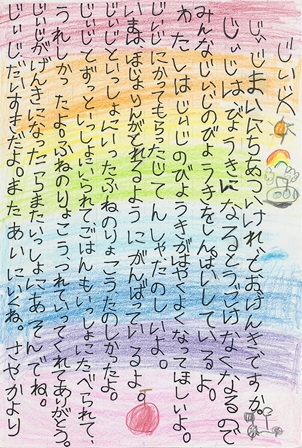 じぃじへ
じぃじまいにちあついけれどおげんきですか。
じぃじはびょうきになるとうごけなくなるの?
みんなじぃじのびょうきをしんぱいしているよ。
わたしはじぃじのびょうきがはやくよくなってほしいよ。
じぃじにかってもらったじてんしゃたのしいよ。
いまはほじょりんがとれるようにがんばっているよ。
じぃじといっしょにいったふねのりょこうたのしかったよ。
じぃじとずっといっしょにいられてごはんもいっしょにたべられて、
うれしかったよ。ふねのりょこうつれていってくれてありがとう。
じぃじがげんきになったらまたいっしょにあそんでね。
じぃじだいすきだよ。またあいにいくね。さやかより